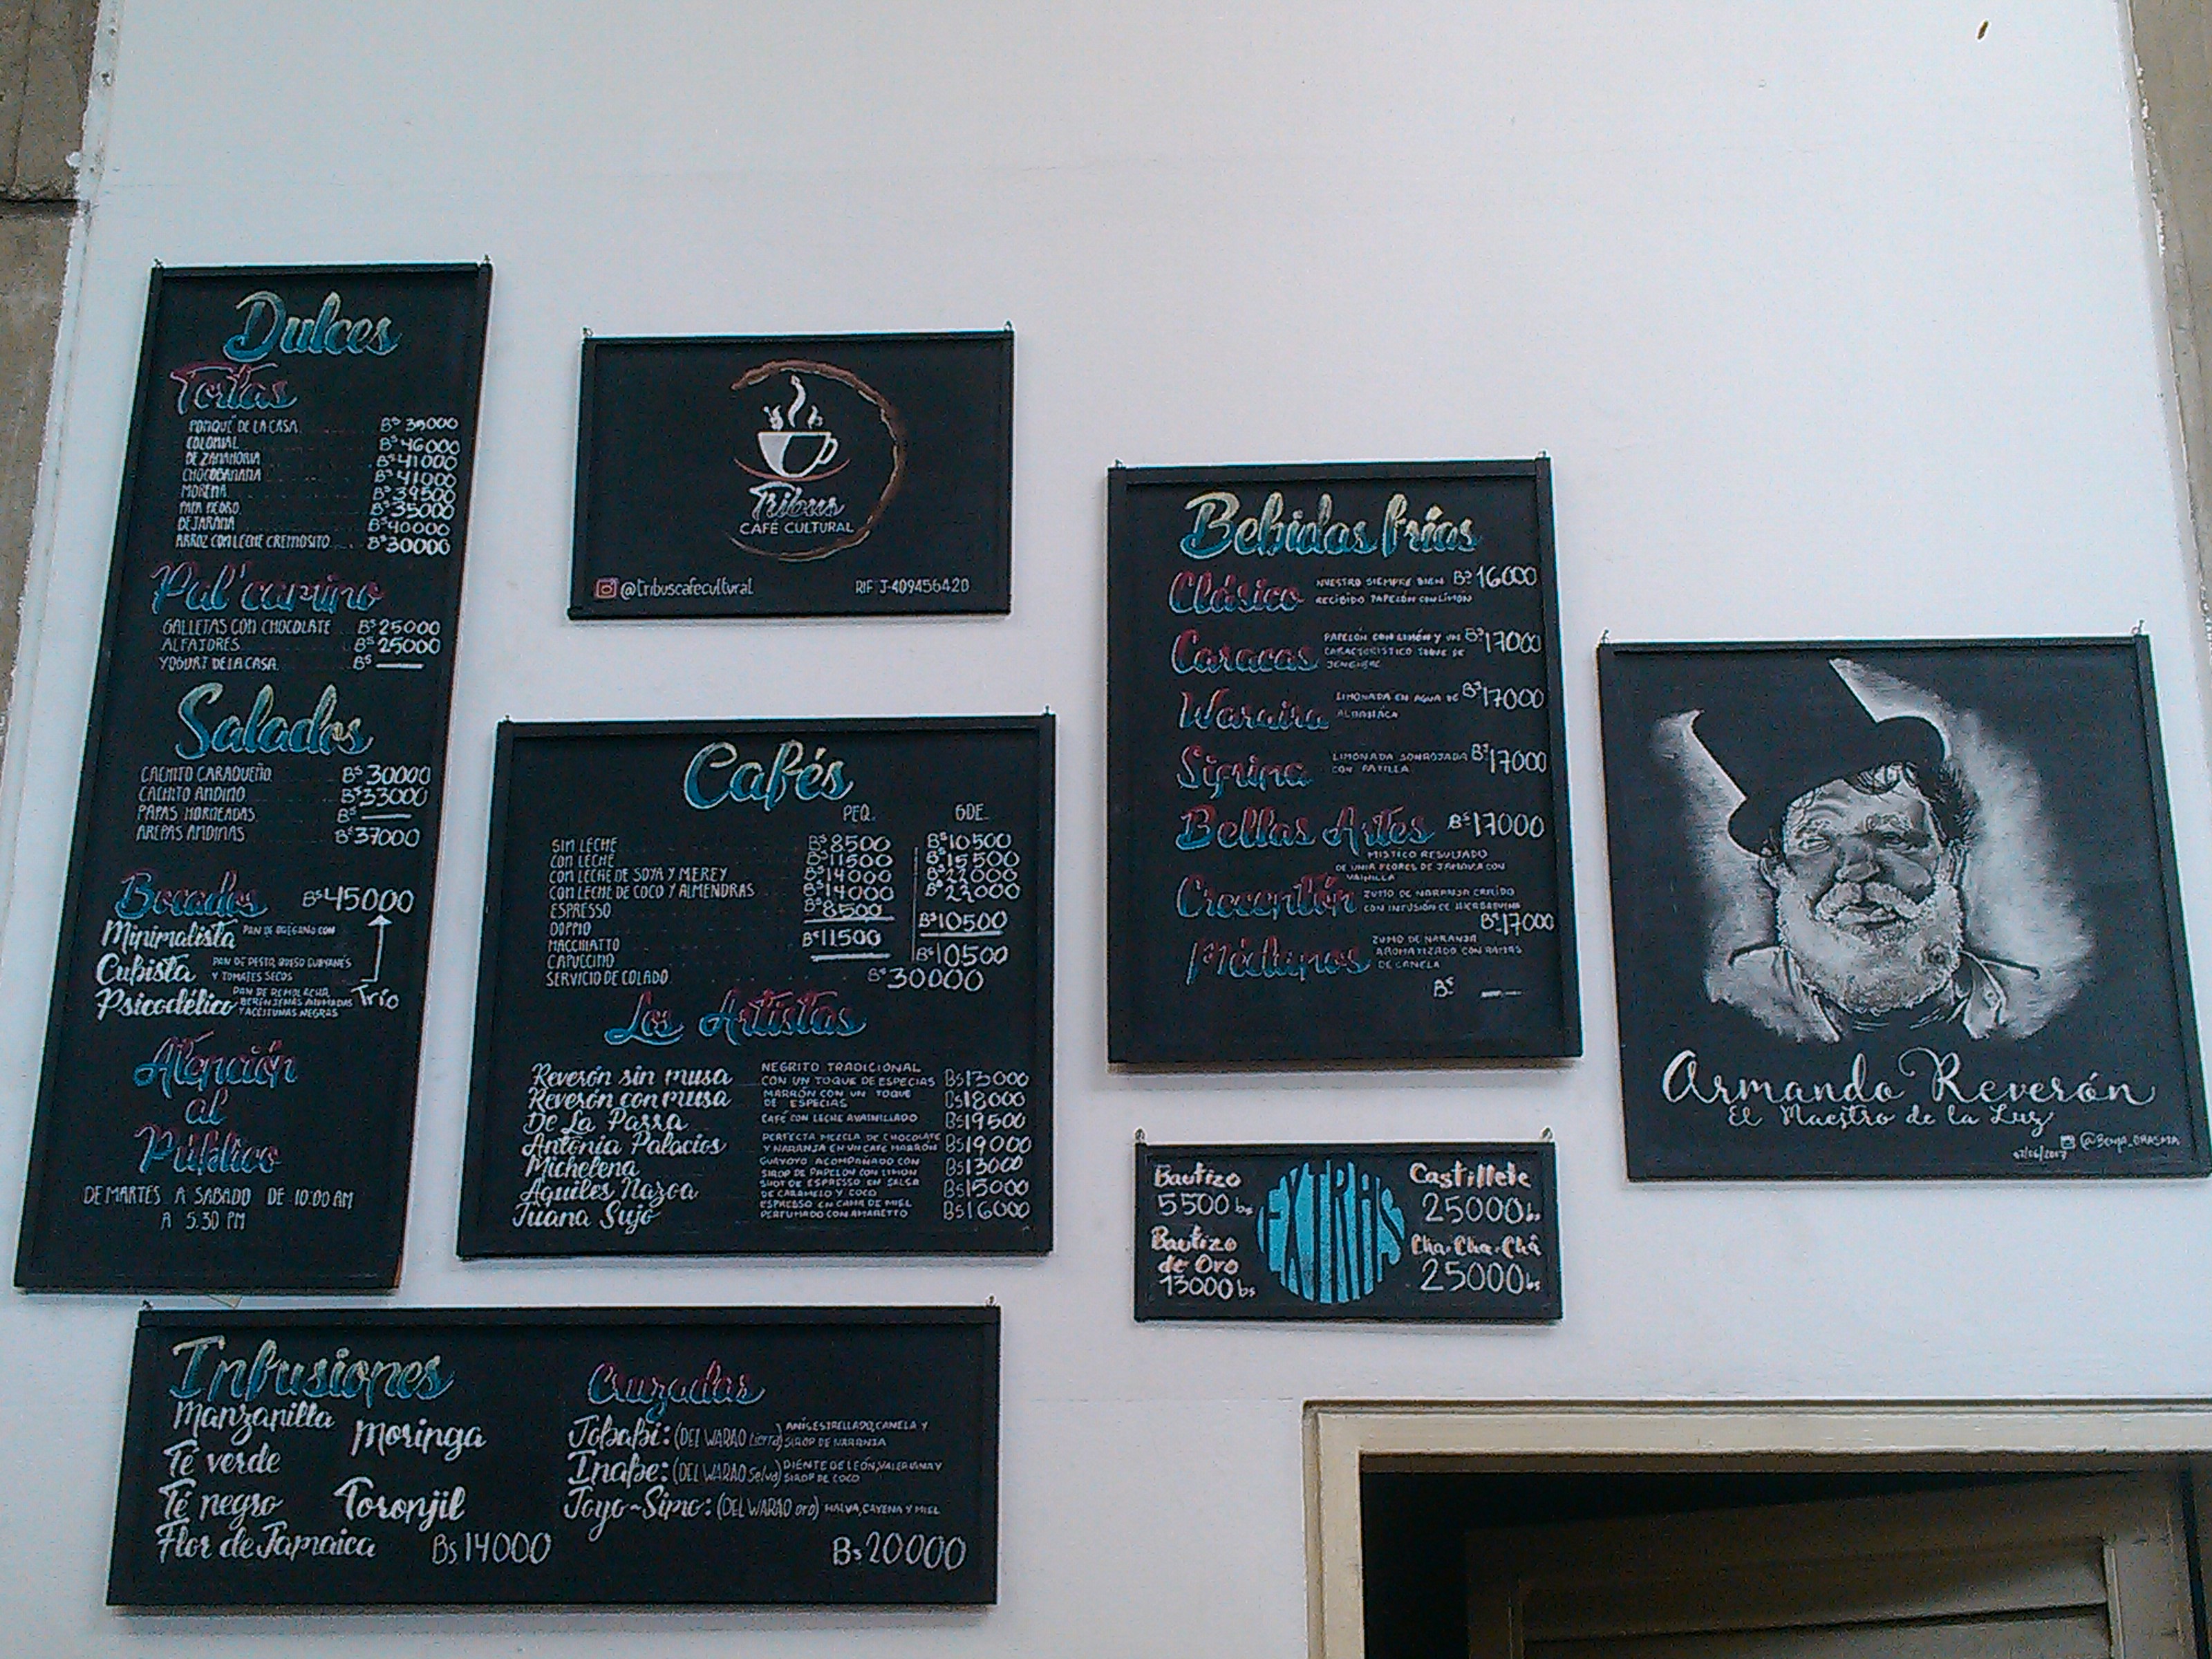 Dulces
Tortas
PONQUÉ DE LA CASA BS 39000
COLONIAL BS 46000
DE ZANAHORIA BS 41000
CHOCOBANANA BS 41000
MORENA BS 39500
PAPA PEDRO BS 35000
DE JARANA BS 40000
ARROZ CON LECHE CREMOSITO BS 30000
Pal' camino
GALLETAS CON CHOCOLATE BS 25000
ALFAJORES BS 25000
YOGURT DE LA CASA BS
Salados
CACHITO CARAQUEÑO BS 30000
CACHITO ANDINO BS 33000
PAPAS HORNEADAS BS
AREPAS ANDINAS BS 37000
Bocados BS 45000
Minimalista PAN DE OREGANO CON
Cubista PAN DE PESTO, QUESO GUAYANÉS
Y TOMATES SECOS
Psicodélico PAN DE REMOLACHA,
BERENJENAS AHUMADAS
Y ACEITUNAS NEGRAS
Trío
Atención
al
Público
DE MARTES A SABADO DE 10:00 AM
A 5:30 PM
Tribus
CAFÉ CULTURAL
@tribuscafecultural RIF J-409456420
Cafés
PEQ. GDE.
SIN LECHE BS 8500 BS 10500
CON LECHE BS 11500 BS 15500
CON LECHE DE SOYA Y MEREY BS 14000 BS 22000
CON LECHE DE COCO Y ALMENDRAS BS 14000 BS 22000
ESPRESSO BS 8500
DOPPIO BS 10500
MACCHIATTO BS 11500
CAPUCCINO BS 10500
SERVICIO DE COLADO BS 30000
Los Artistas
Reverón sin musa NEGRITO TRADICIONAL
CON UN TOQUE DE ESPECIAS BS 13000
Reverón con musa MARRÓN CON UN TOQUE
DE ESPECIAS BS 18000
De La Parra CAFÉ CON LECHE AVAINILLADO BS 19500
Antonia Palacios PERFECTA MEZCLA DE CHOCOLATE
Y NARANJA EN UN CAFE MARRÓN BS 19000
Michelena GUAYOYO ACOMPAÑADO CON
SIROP DE PAPELON CON LIMON BS 13000
Aquiles Nazoa SHOT DE ESPRESSO EN SALSA
DE CARAMELO Y COCO BS 15000
Juana Sujo ESPRESSO EN CAMA DE MIEL
PERFUMADO CON AMARETTO BS 16000
Bebidas frías
Clásico NUESTRO SIEMPRE BIEN BS 16000
RECIBIDO PAPELÓN CON LIMÓN
Caracas PAPELÓN CON LIMÓN Y UN BS 17000
CARACTERISTICO TOQUE DE
JENGIBRE
Waraira LIMONADA EN AGUA DE BS 17000
ALBAHACA
Sifrina LIMONADA SONROJADA BS 17000
CON PATILLA
Bellas Artes BS 17000
MISTICO RESULTADO
DE UNIR FLORES DE JAMAICA CON
VAINILLA
Crocantón ZUMO DE NARANJA CREIDO
CON INFUSIÓN DE HIERBABUENA
BS 17000
Médanos ZUMO DE NARANJA
AROMATIZADO CON RAMAS
DE CANELA
BS
Armando Reverón
El Maestro de la Luz
Bautizo
5500 bs
Bautizo
de Oro
13000 bs
EXTRAS
Castillete
25000 bs
Cha-Cha-Chá
25000 bs
Infusiones
Manzanilla
Moringa
Té verde
Té negro
Toronjil
Flor de Jamaica Bs 14000
Cruzadas
Jobabi: (DEL WARAO tierra) ANÍS ESTRELLADO, CANELA Y
SIROP DE NARANJA
Inabe: (DEL WARAO Selva) DIENTE DE LEÓN, VALERIANA Y
SIROP DE COCO
Joyo-Simo: (DEL WARAO oro) MALVA, CAYENA Y MIEL
Bs 20000